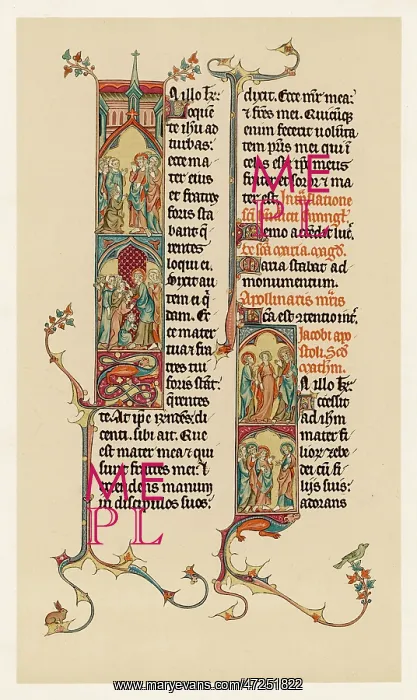 N illo tr.
Loque
te ihu ad
turbas:
ecce ma
ter eius
et fratres
foris sta
bant q
rentes
loqui ei.
Dixit au
tem ei q
dam. Ec
ce mater
tua & fra
tres tui
foris stāt
q̄rentes
te. At ip̄e rn̄dēs. di
centi. sibi ait. Que
est mater mea & qui
sunt fratres mei. &
extendens manum
in discipulos suos.
dixit. Ecce mr̄ mea:
& frēs mei. Quicūq̄
enim fecerit volūta
tem pr̄is mei qui ī
celis est ip̄e meus
frater et soror & ma
ter est.
Nemo accēdit luc̄.
Maria stabat ad
monumentum.
Apollinaris mr̄is
Iacobi apo
stoli. Scd̄
matheū.
N illo tr.
Accessit
ad ihm
mater fi
lior̄ zebe
dei cū fi
lijs suis:
adorans
ME
PL
ME
PL
www.maryevans.com/47251822